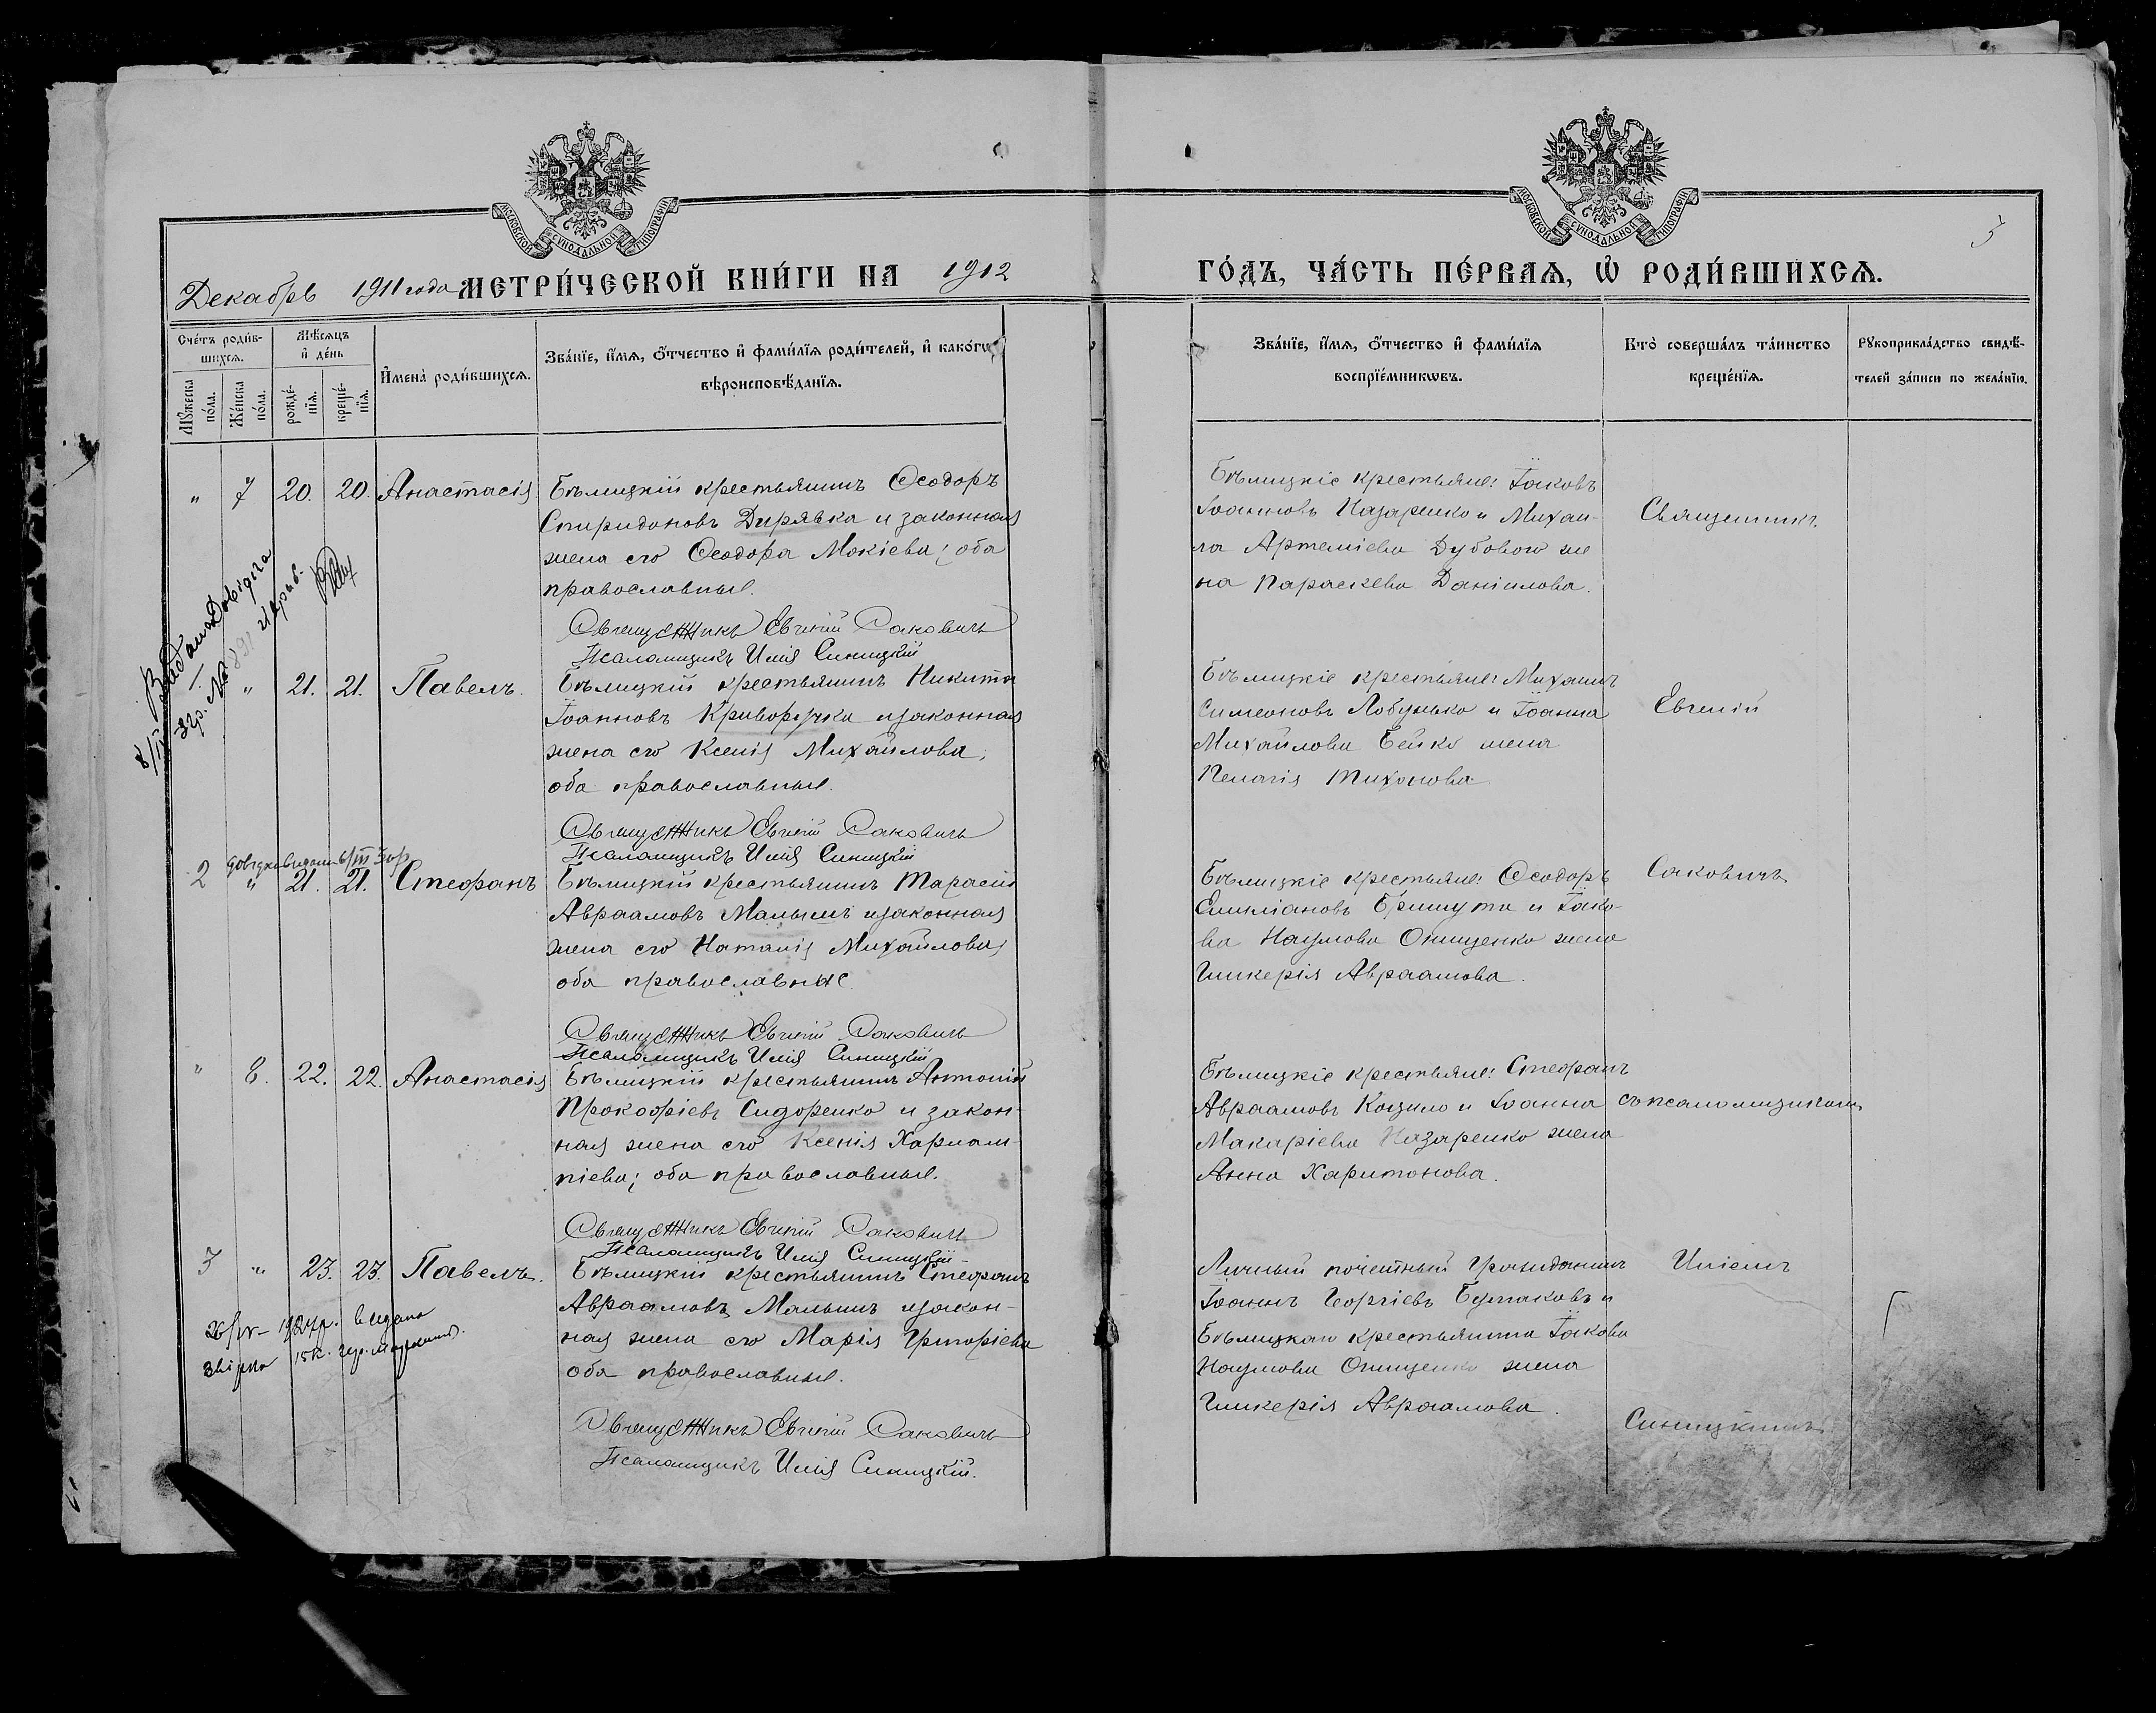 МОСКОВСКОЙ СѴНОДАЛЬНОЙ ТИПОГРАФІИ
МОСКОВСКОЙ СѴНОДАЛЬНОЙ ТИПОГРАФІИ
Декабрь 1911 года МЕТРИ́ЧЕСКОЙ КНИ́ГИ НА 1912
ГО́ДЪ, ЧА́СТЬ ПЕ́РВАѦ, Ѽ РОДИ́ВШИХСѦ.
Сче́тъ роди́в-
шихсѧ.
Мѣ́сѧцъ
и҆ де́нь
Мꙋ́жеска
по́ла.
Же́нска
по́ла.
рожде́-
нїѧ.
креще́-
нїѧ.
И҆мена̀ роди́вшихсѧ.
Зва́нїе, и҆́мѧ, ѻ҆́тчество и҆ фами́лїѧ роди́телей, и҆ како́гѡ
вѣроисповѣ́данїѧ.
Зва́нїе, и҆́мѧ, ѻ҆́тчество и҆ фами́лїѧ
воспрїе́мникѡвъ.
Кто̀ соверша́лъ та́инство
креще́нїѧ.
Рꙋкоприкла́дство свидѣ́-
телей за́писи по жела́нїю.
" 7 20. 20. Анастасія
Бѣлицкій крестьянинъ Ѳеодоръ
Спиридоновъ Дирявка и законная
жена его Ѳеодора Мокіева; оба
православные.
Священникъ Евгеній Саковичъ
Псаломщикъ Илія Синицкій
Бѣлицкіе крестьяне: Іаковъ
Іоанновъ Назаренко и Михаи-
ла Артеміева Дубового же
на Параскева Даніилова.
Священникъ
" 21. 21. Павелъ
Бѣлицкій крестьянинъ Никита
Іоанновъ Криворучка и законная
жена его Ксенія Михайлова;
оба православные.
Священникъ Евгеній Саковичъ
Псаломщикъ Илія Синицкій
Бѣлицкіе крестьяне: Михаилъ
Симеоновъ Лобунько и Іоанна
Михайлова Бейко жена
Пелагія Тихонова
Евгеній
2 " 21. 21. Стефанъ
Бѣлицкій крестьянинъ Тарасій
Авраамовъ Малышъ и законная
жена его Наталія Михайлова;
оба православные
Священникъ Евгеній Саковичъ
Псаломщикъ Илія Синицкій
Бѣлицкіе крестьяне: Ѳеодоръ
Емиліановъ и Іако-
ва Наумова Онищенко жена
Гликерія Авраамова.
Саковичъ
" 8. 22. 22. Анастасія
Бѣлицкій крестьянинъ Антоній
Прокофіевъ Сидоренко и закон-
ная жена его Ксенія Харлам-
піева; оба православные.
Священникъ Евгеній Саковичъ
Псаломщикъ Илія Синицкій
Бѣлицкіе крестьяне: Стефанъ
Авраамовъ и Іоанна
Макаріева Назаренко жена
Анна Харитонова.
съ псаломщикомъ
3 " 23. 23. Павелъ.
Бѣлицкій крестьянинъ Стефанъ
Авраамовъ Малышъ и закон-
ная жена его Марія Григоріева
оба православные.
Священникъ Евгеній Саковичъ
Псаломщикъ Илія Синицкій.
Личный почетный гражданинъ
Іоаннъ Георгіевъ Булгаковъ и
Бѣлицкаго крестьянина Іакова
Наумова Онищенко жена
Гликерія Авраамова.
Иліемъ
Синицкимъ